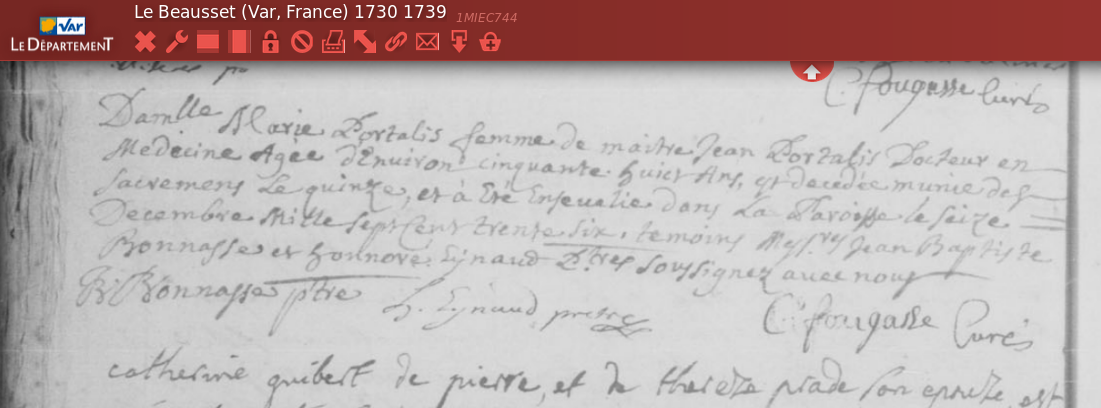 Le Beausset (Var, France) 1730 1739
1MIEC744
VAR
LE DÉPARTEMENT
C. fougasse Curé
Damlle Marie Portalis femme de maitre Jean Portalis Docteur en
Medecine Agée d'Environ cinquante huict Ans, est decedée munie des
sacremens Le quinze, et à Eté Ensevelie dans La Paroisse le seize
Decembre Mille sept Cent trente six, temoins Messrs Jean Baptiste
Bonnasse et honnoré Eynaud Ptres soussignez avec nous
B. Bonnasse ptre
h. Eynaud pretre
C. fougasse Curé
catherine guibert de pierre, et de thereze prade son epouze est